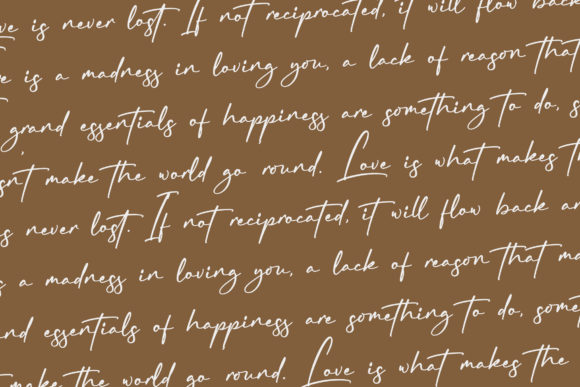 ve is never lost. If not reciprocated, it will flow back
e is a madness in loving you, a lack of reason that
grand essentials of happiness are something to do, s
sn't make the world go round. Love is what makes th
s never lost. If not reciprocated, it will flow back an
s a madness in loving you, a lack of reason that ma
nd essentials of happiness are something to do, some
t make the world go round. Love is what makes the